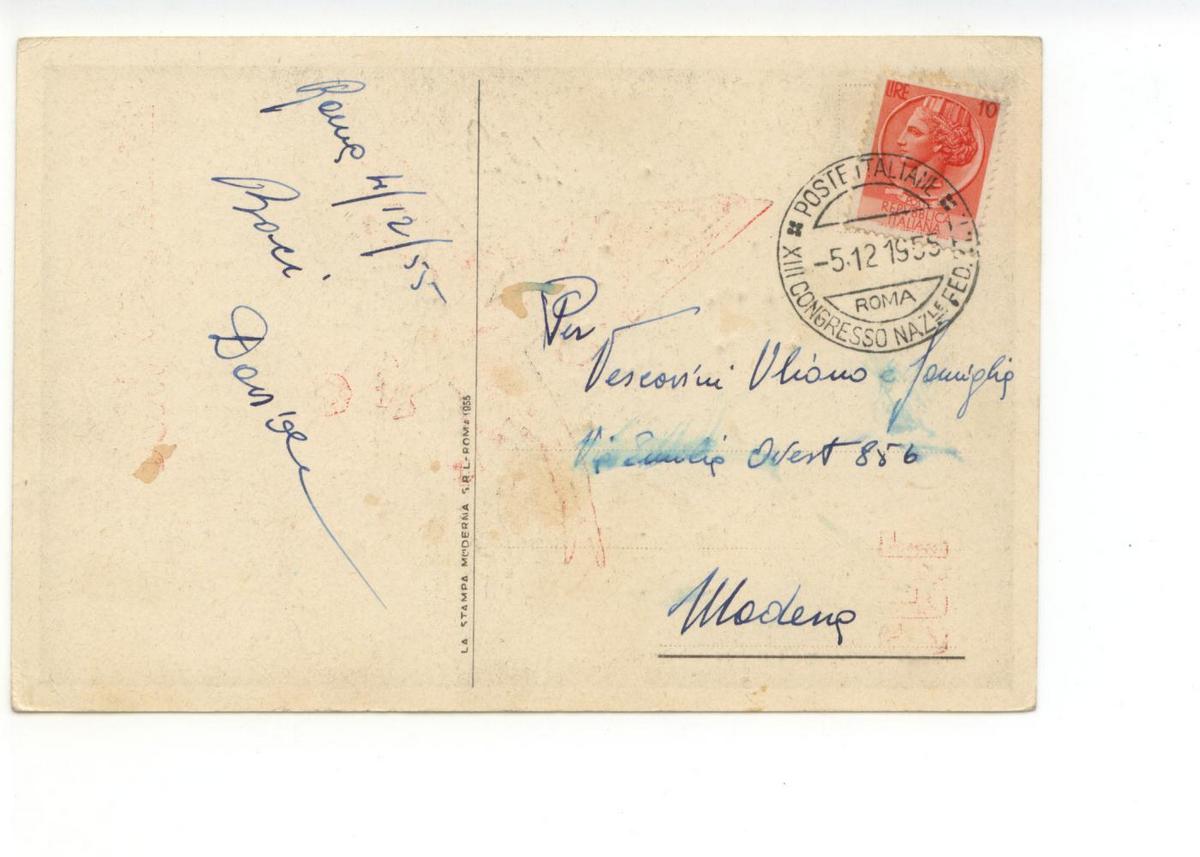 Roma 4/12/55
Baci
LA STAMPA MODERNA S.R.L - ROMA 1955
LIRE 10
REPUBBLICA
ITALIANA
POSTE ITALIANE
-5.12 1955
ROMA
XIII CONGRESSO NAZLE FED.
Per
Vescovini Uliano e famiglia
Via Emilia Ovest 856
Modena